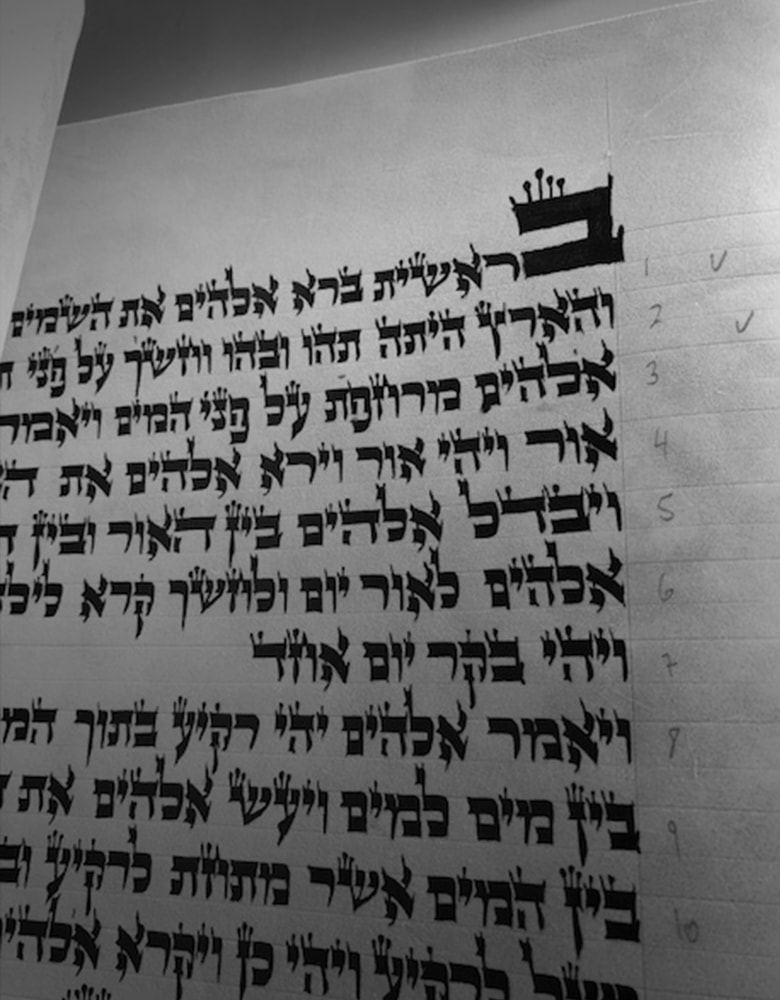 בראשית ברא אלהים את השמים 1 ✓
והארץ היתה תהו ובהו וחשך על פני 2 ✓
אלהים מרחפת על פני המים ויאמר 3
אור ויהי אור וירא אלהים את 4
ויבדל אלהים בין האור ובין 5
אלהים לאור יום ולחשך קרא 6
ויהי בקר יום אחד 7
ויאמר אלהים יהי רקיע בתוך המ 8
בין מים למים ויעש אלהים את 9
בין המים אשר מתחת לרקיע וב 10
מעל לרקיע ויהי כן ויקרא אלהי